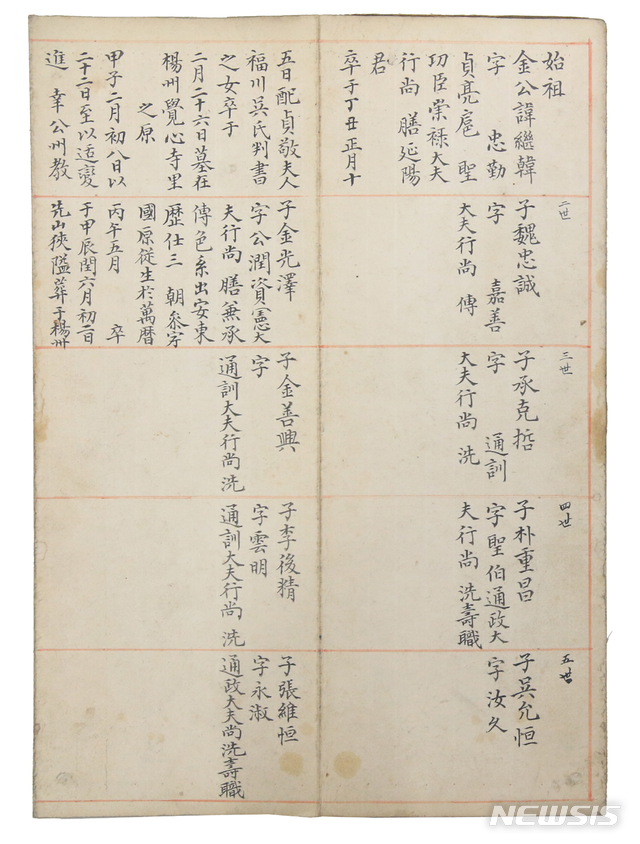 始祖
金公諱繼韓
字 忠勤
貞亮扈 聖
功臣崇祿大夫
行尚 膳延陽
君
卒于丁丑正月十
五日配貞敬夫人
福川吳氏判書
之女卒于
二月二十六日墓在
楊州覺心寺里
之原
甲子二月初八日以
二十二日至以适變
進 幸公州教
二世
子魏忠誠
字 嘉善
大夫行尚 傳
子金光澤
字公潤資憲大
夫行尚 膳兼承
傳色系出安東
歷仕三 朝參字
國原從生於萬曆
丙午五月 卒
于甲辰閏六月初二日
先山狹隘葬于楊州
三世
子承克哲
字 通訓
大夫行尚 洗
子金善興
字
通訓大夫行尚 洗
四世
子朴重昌
字聖伯通政大
夫行尚 洗壽職
子李後精
字雲明
通訓大夫行尚 洗
五世
子吳允恒
字汝久
子張維恒
字永淑
通政大夫尚洗壽職
NEWSIS